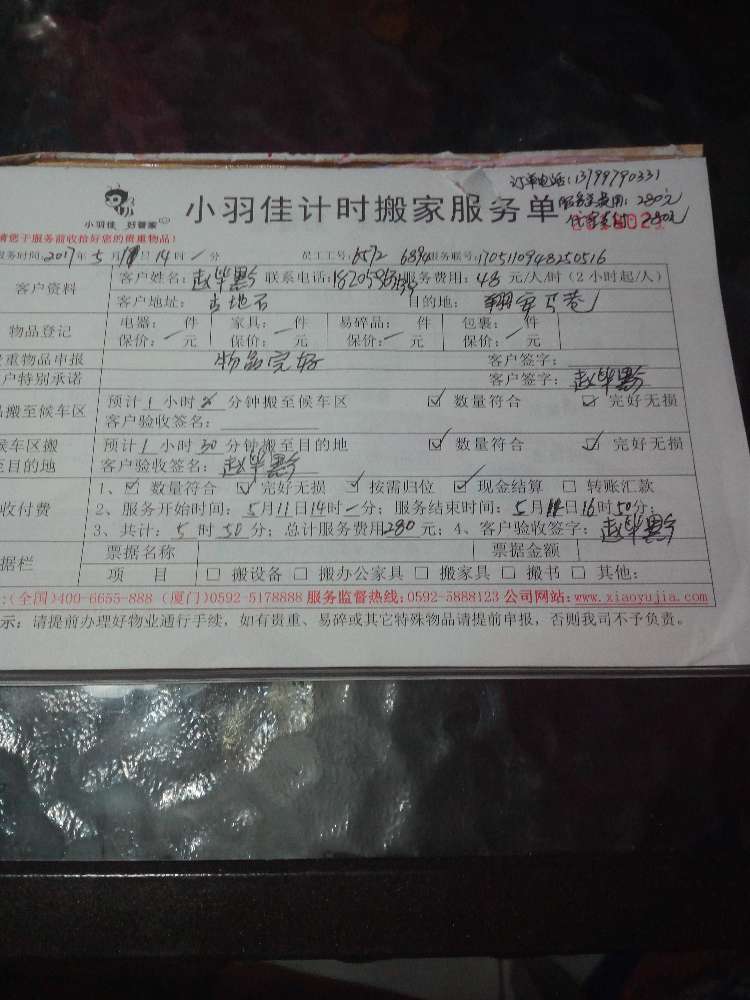 订单电话:13799790331
小羽佳 好管家
小羽佳计时搬家服务单
服务费用:280元
请您于服务前收拾好您的贵重物品!
服务时间:2017年5月11日14时一分 员工工号:K572 6894 服务联号:1705110948250516
客户资料
客户姓名: 联系电话: 服务费用:48元/人/时(2小时起/人)
客户地址: 目的地:
物品登记
电器: 件 家具: 件 易碎品: 件 包裹: 件
保价:一元 保价:一元 保价:一元 保价:一元
贵重物品申报 物品完好 客户签字:
客户特别承诺 客户签字:赵毕黔
品搬至候车区 预计1小时 分钟搬至候车区 ☑ 数量符合 ☑ 完好无损
客户验收签名:
候车区搬 预计1小时30分钟搬至目的地 ☑ 数量符合 ☑ 完好无损
至目的地 客户验收签名:赵毕黔
收付费
1、☑ 数量符合 ☑ 完好无损 ☑ 按需归位 ☑ 现金结算 □ 转账汇款
2、服务开始时间:5月11日14时一分;服务结束时间:5月11日16时50分;
3、共计:5时50分;总计服务费用280元;4、客户验收签字:赵毕黔
据栏 票据名称 票据金额
项 目 □ 搬设备 □ 搬办公家具 □ 搬家具 □ 搬书 □ 其他:
:(全国)400-6655-888 (厦门)0592-5178888 服务监督热线:0592-5888123 公司网站:www.xiaoyujia.com
示:请提前办理好物业通行手续,如有贵重、易碎或其它特殊物品请提前申报,否则我司不予负责。